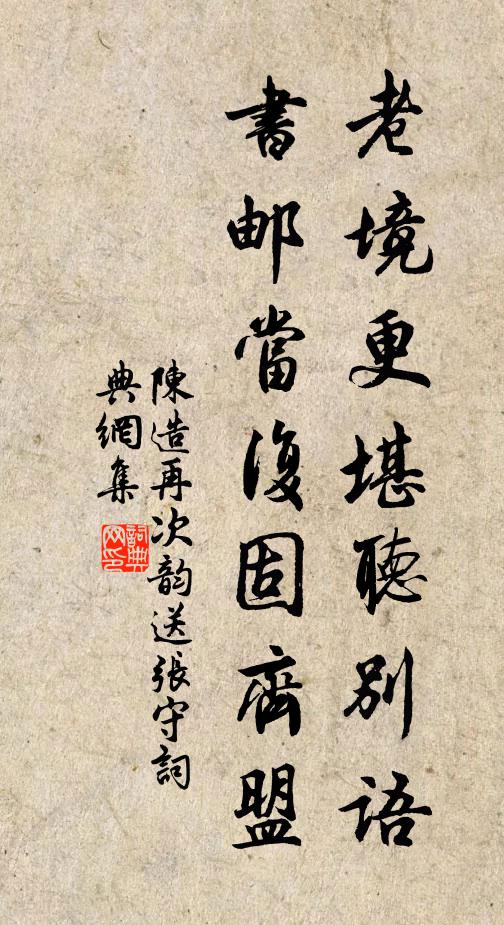 老境更堪聽别语
書邮當復固齊盟
陳造再次韵送張守詞
典網集
詞典网印